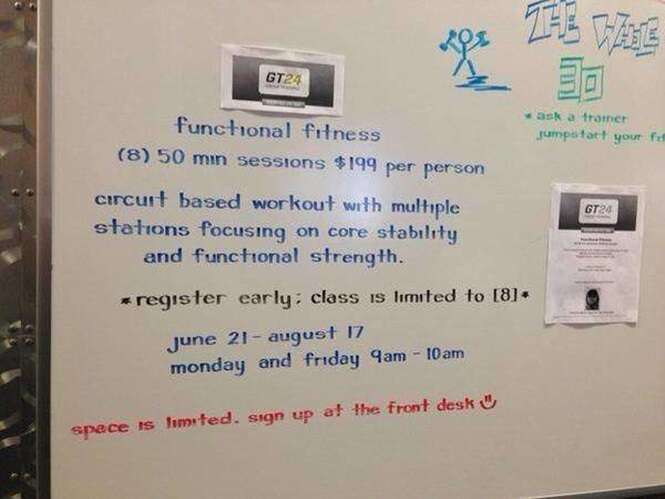 THE WHOLE
30
* ask a trainer
jumpstart your
GT24
functional fitness
(8) 50 min sessions $199 per person
circuit based workout with multiple
stations focusing on core stability
and functional strength.
*register early; class is limited to [8]*
june 21 - august 17
monday and friday 9am - 10am
space is limited. sign up at the front desk
GT24